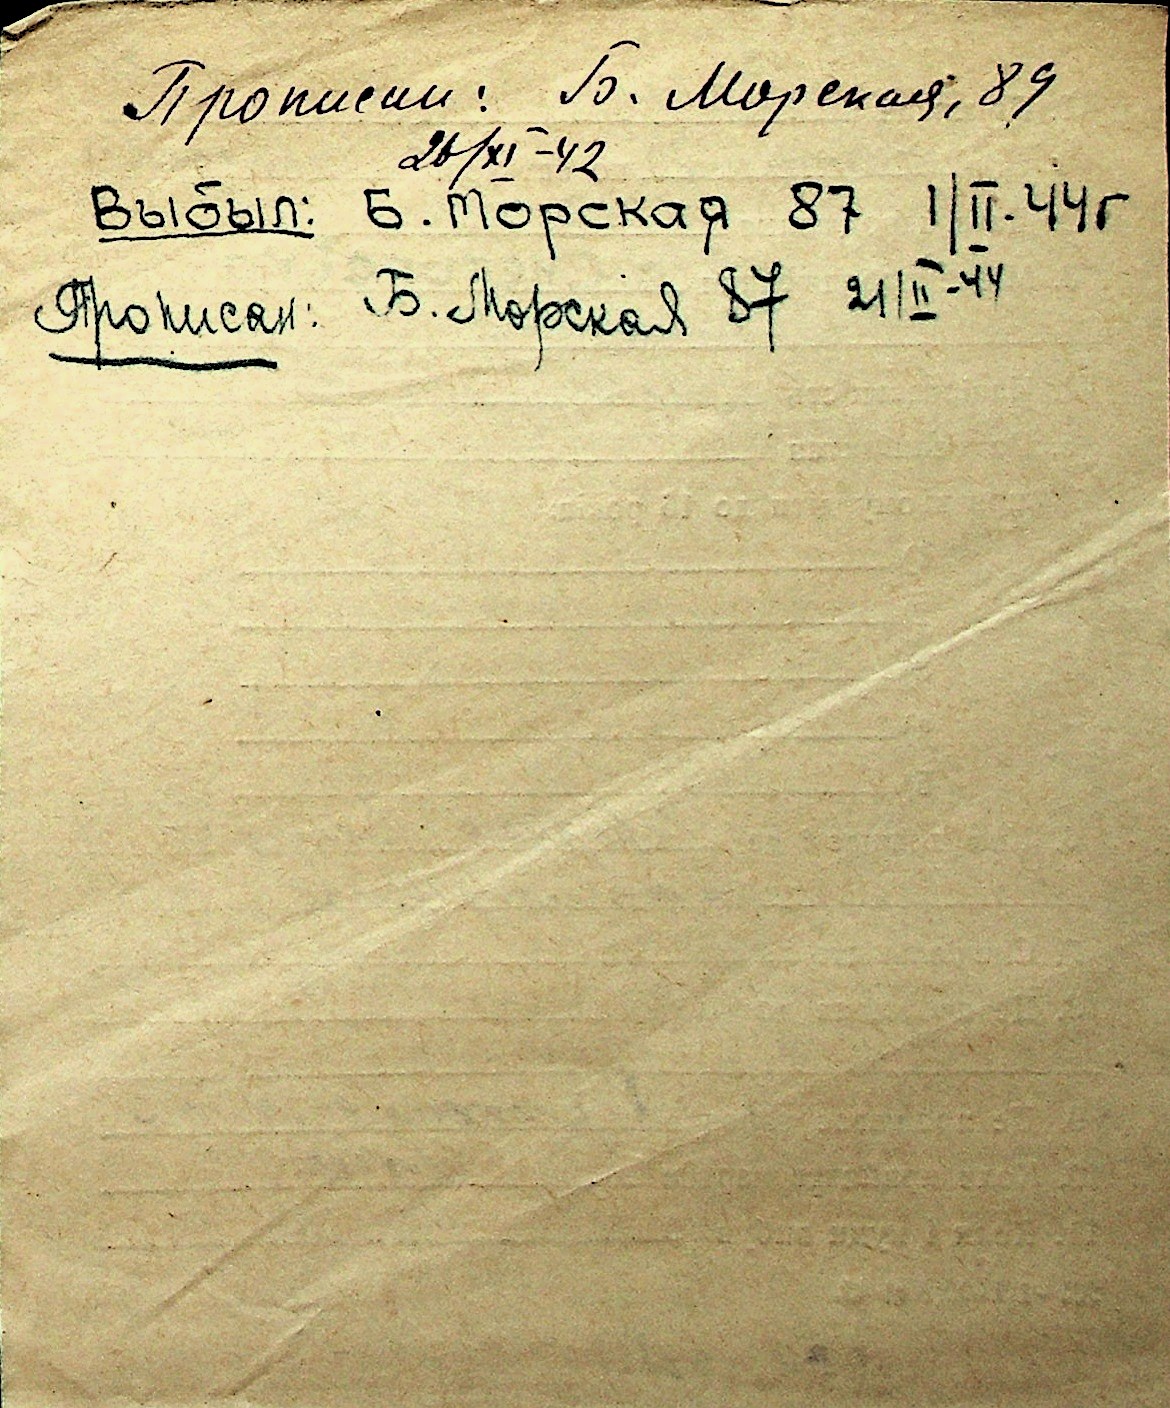 Прописан: Б. Морская, 89
26/XI-42
Выбыл: Б. Морская 87 1/II-44г
Прописан: Б. Морская 87 21/II-44